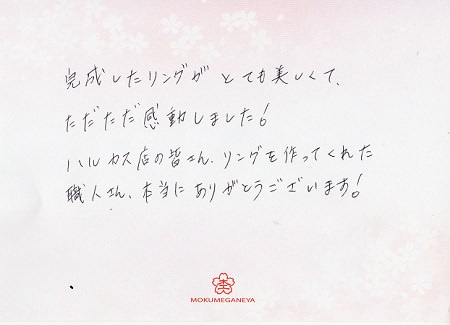 完成したリングが とても美しくて、
ただただ感動しました!
ハルカス店の皆さん、リングを作ってくれた
職人さん、本当にありがとうございます!
MOKUMEGANEYA